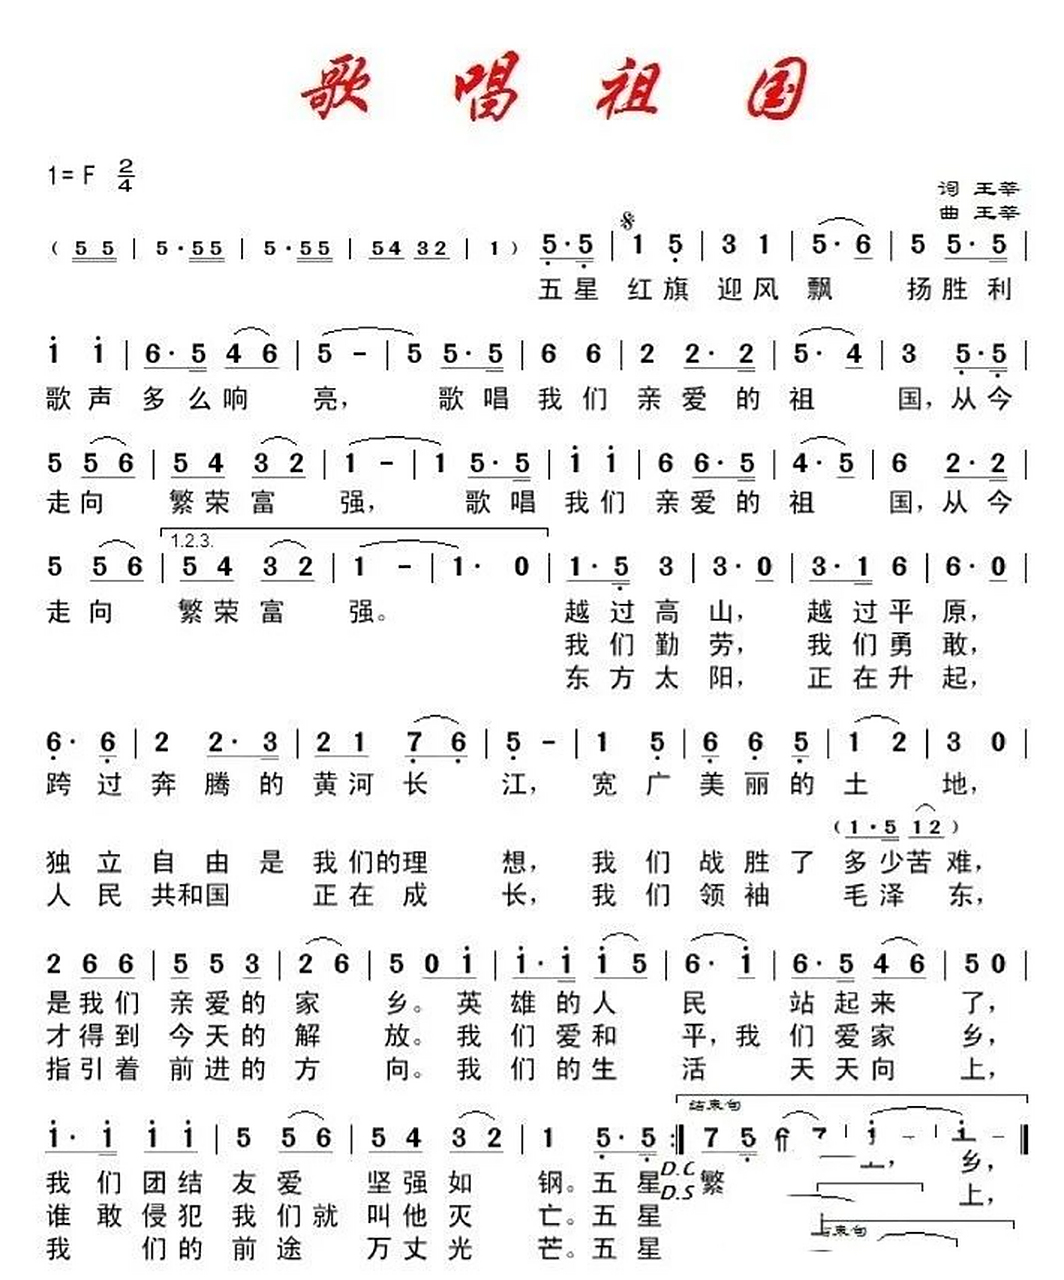 歌唱祖国
1= F 2/4
词 王莘
曲 王莘
( 5 5 | 5·55 | 5·55 | 54 32 | 1 ) 5·5 | 1 5 | 3 1 | 5·6 | 5 5·5 |
五星 红旗 迎风 飘 扬胜利
1 1 | 6·5 4 6 | 5 - | 5 5·5 | 6 6 | 2 2·2 | 5·4 | 3 5·5 |
歌声 多么响 亮， 歌唱 我们 亲爱的 祖 国，从今
5 5 6 | 5 4 3 2 | 1 - | 1 5·5 | 1 1 | 6 6·5 | 4·5 | 6 2·2 |
走向 繁荣富 强， 歌唱 我们 亲爱的 祖 国，从今
1.2.3.
5 5 6 | 5 4 3 2 | 1 - | 1· 0 | 1·5 3 | 3·0 | 3·1 6 | 6·0 |
走向 繁荣富 强。 越过高 山， 越过平 原，
我们勤 劳， 我们勇 敢，
东方太 阳， 正在升 起，
6·6 | 2 2·3 | 2 1 7 6 | 5 - | 1 5 | 6 6 5 | 1 2 | 3 0 |
跨过 奔腾的 黄河长 江， 宽广 美丽的 土 地，
(1·5 12)
独立 自由是 我们的理 想， 我们 战胜了 多少苦难，
人民 共和国 正在成 长， 我们 领袖 毛泽 东，
2 6 6 | 5 5 3 | 2 6 | 5 0 1 | 1·1 1 5 | 6·1 | 6·5 4 6 | 5 0 |
是我们 亲爱的 家 乡。英 雄的人 民 站起来 了，
才得到 今天的 解 放。我 们爱和 平，我 们爱家 乡，
指引着 前进的 方 向。我 们的生 活 天天向 上，
结束句
1·1 1 1 | 5 5 6 | 5 4 3 2 | 1 5·5 :‖ 7 5 6 7 | 1 - | 1 - ‖
我们团结 友爱 坚强如 钢。五星 D.C 繁 乡，
谁敢侵犯 我们就 叫他灭 亡。五星 D.S 上，
我们的 前途 万丈光 芒。五星
结束句